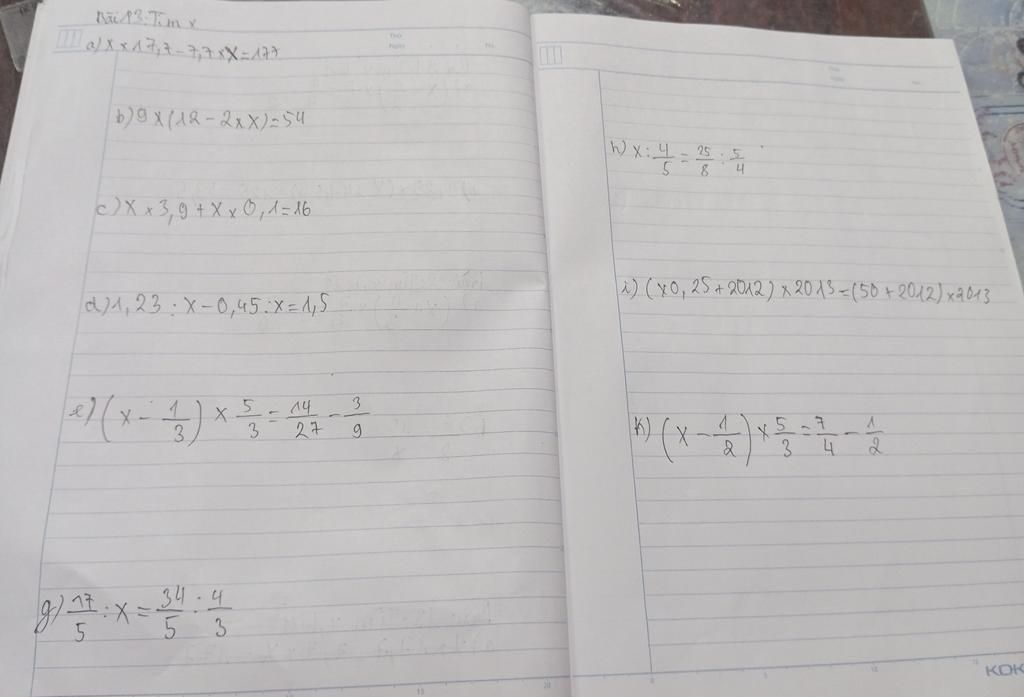 Bài 13: Tìm x
a) x × 17,7 - 7,7 × x = 177
b) 9 × (12 - 2 × x) = 54
c) x × 3,9 + x × 0,1 = 16
d) 1,23 : x - 0,45 : x = 1,5
e) (x - 1/3) × 5/3 = 14/27 - 3/9
g) 17/5 : x = 34/5 : 4/3
h) x : 4/5 = 25/8 : 5/4
i) (x0,25 + 2012) × 2013 = (50 + 2012) × 2013
k) (x - 1/2) × 5/3 = 7/4 - 1/2
KOK